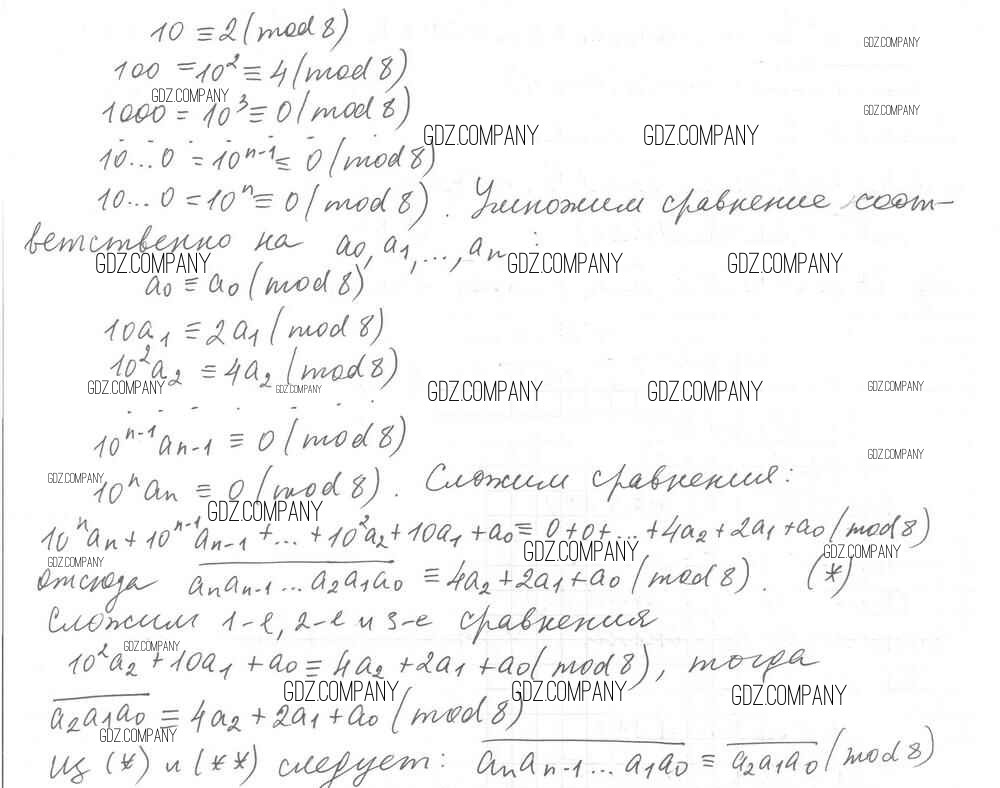 10 ≡ 2 (mod 8)
GDZ.COMPANY
100 = 10² ≡ 4 (mod 8)
GDZ.COMPANY
1000 = 10³ ≡ 0 (mod 8)
GDZ.COMPANY
. . . . . . .
GDZ.COMPANY GDZ.COMPANY
10...0 = 10ⁿ⁻¹ ≡ 0 (mod 8)
10...0 = 10ⁿ ≡ 0 (mod 8). Умножим сравнение соот-
ветственно на a₀, a₁, ..., aₙ:
GDZ.COMPANY GDZ.COMPANY GDZ.COMPANY
a₀ ≡ a₀ (mod 8)
10a₁ ≡ 2a₁ (mod 8)
10²a₂ ≡ 4a₂ (mod 8)
GDZ.COMPANY GDZ.COMPANY GDZ.COMPANY GDZ.COMPANY GDZ.COMPANY
. . . . . . .
10ⁿ⁻¹aₙ₋₁ ≡ 0 (mod 8)
GDZ.COMPANY
GDZ.COMPANY
10ⁿaₙ ≡ 0 (mod 8). Сложим сравнения:
GDZ.COMPANY
10ⁿaₙ + 10ⁿ⁻¹aₙ₋₁ + ... + 10²a₂ + 10a₁ + a₀ ≡ 0 + 0 + ... + 4a₂ + 2a₁ + a₀ (mod 8)
GDZ.COMPANY GDZ.COMPANY GDZ.COMPANY
отсюда aₙaₙ₋₁...a₂a₁a₀ ≡ 4a₂ + 2a₁ + a₀ (mod 8). (*)
Сложим 1-е, 2-е и 3-е сравнения
GDZ.COMPANY
10²a₂ + 10a₁ + a₀ ≡ 4a₂ + 2a₁ + a₀ (mod 8), тогда
GDZ.COMPANY GDZ.COMPANY GDZ.COMPANY
a₂a₁a₀ ≡ 4a₂ + 2a₁ + a₀ (mod 8)
GDZ.COMPANY
Из (*) и (**) следует: aₙaₙ₋₁...a₁a₀ ≡ a₂a₁a₀ (mod 8)